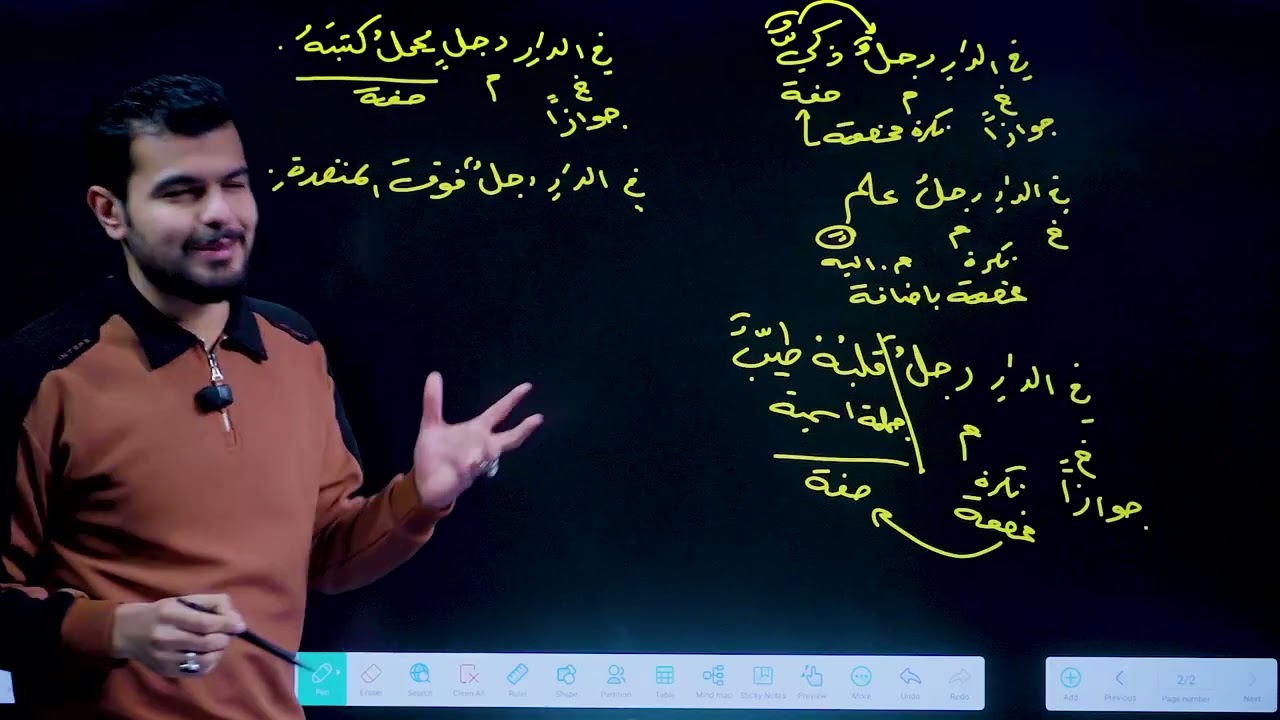 في الدارِ رجلٌ ذكيٌّ
خ م صفة
جوازاً نكرة مخصصة
في الدارِ رجلُ علم
خ م
نكرة م.اليه
مخصصة باضافة
في الدارِ رجلٌ قلبُهُ طيّبٌ
خ م جملة اسمية
جوازاً نكرة مخصصة صفة
في الدارِ رجلٌ يحملُ كتبَهُ .
خ م صفة
جوازاً
في الدارِ رجلٌ فوقَ المنضدةِ.
Pen Eraser Search Clean All Ruler Shape Partition Table Mind map Sticky Notes Preview More Undo Redo
Add Previous 2/2 Page number Next